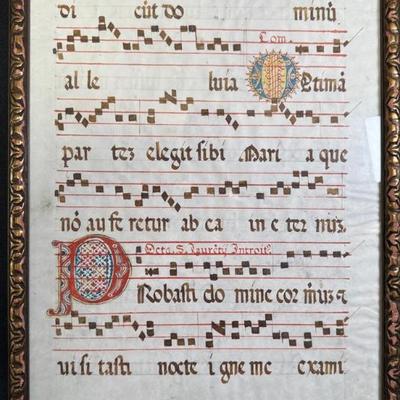 di cūt do minū
Com.
al le luia Optimā
par tez elegit sibi Mari a que
nō au fe retur ab ea in e ter nuz.
Octa. S. Laurētj Introit⁹
Probasti do mine cor meuz ⁊
ui si tasti nocte i gne me exami